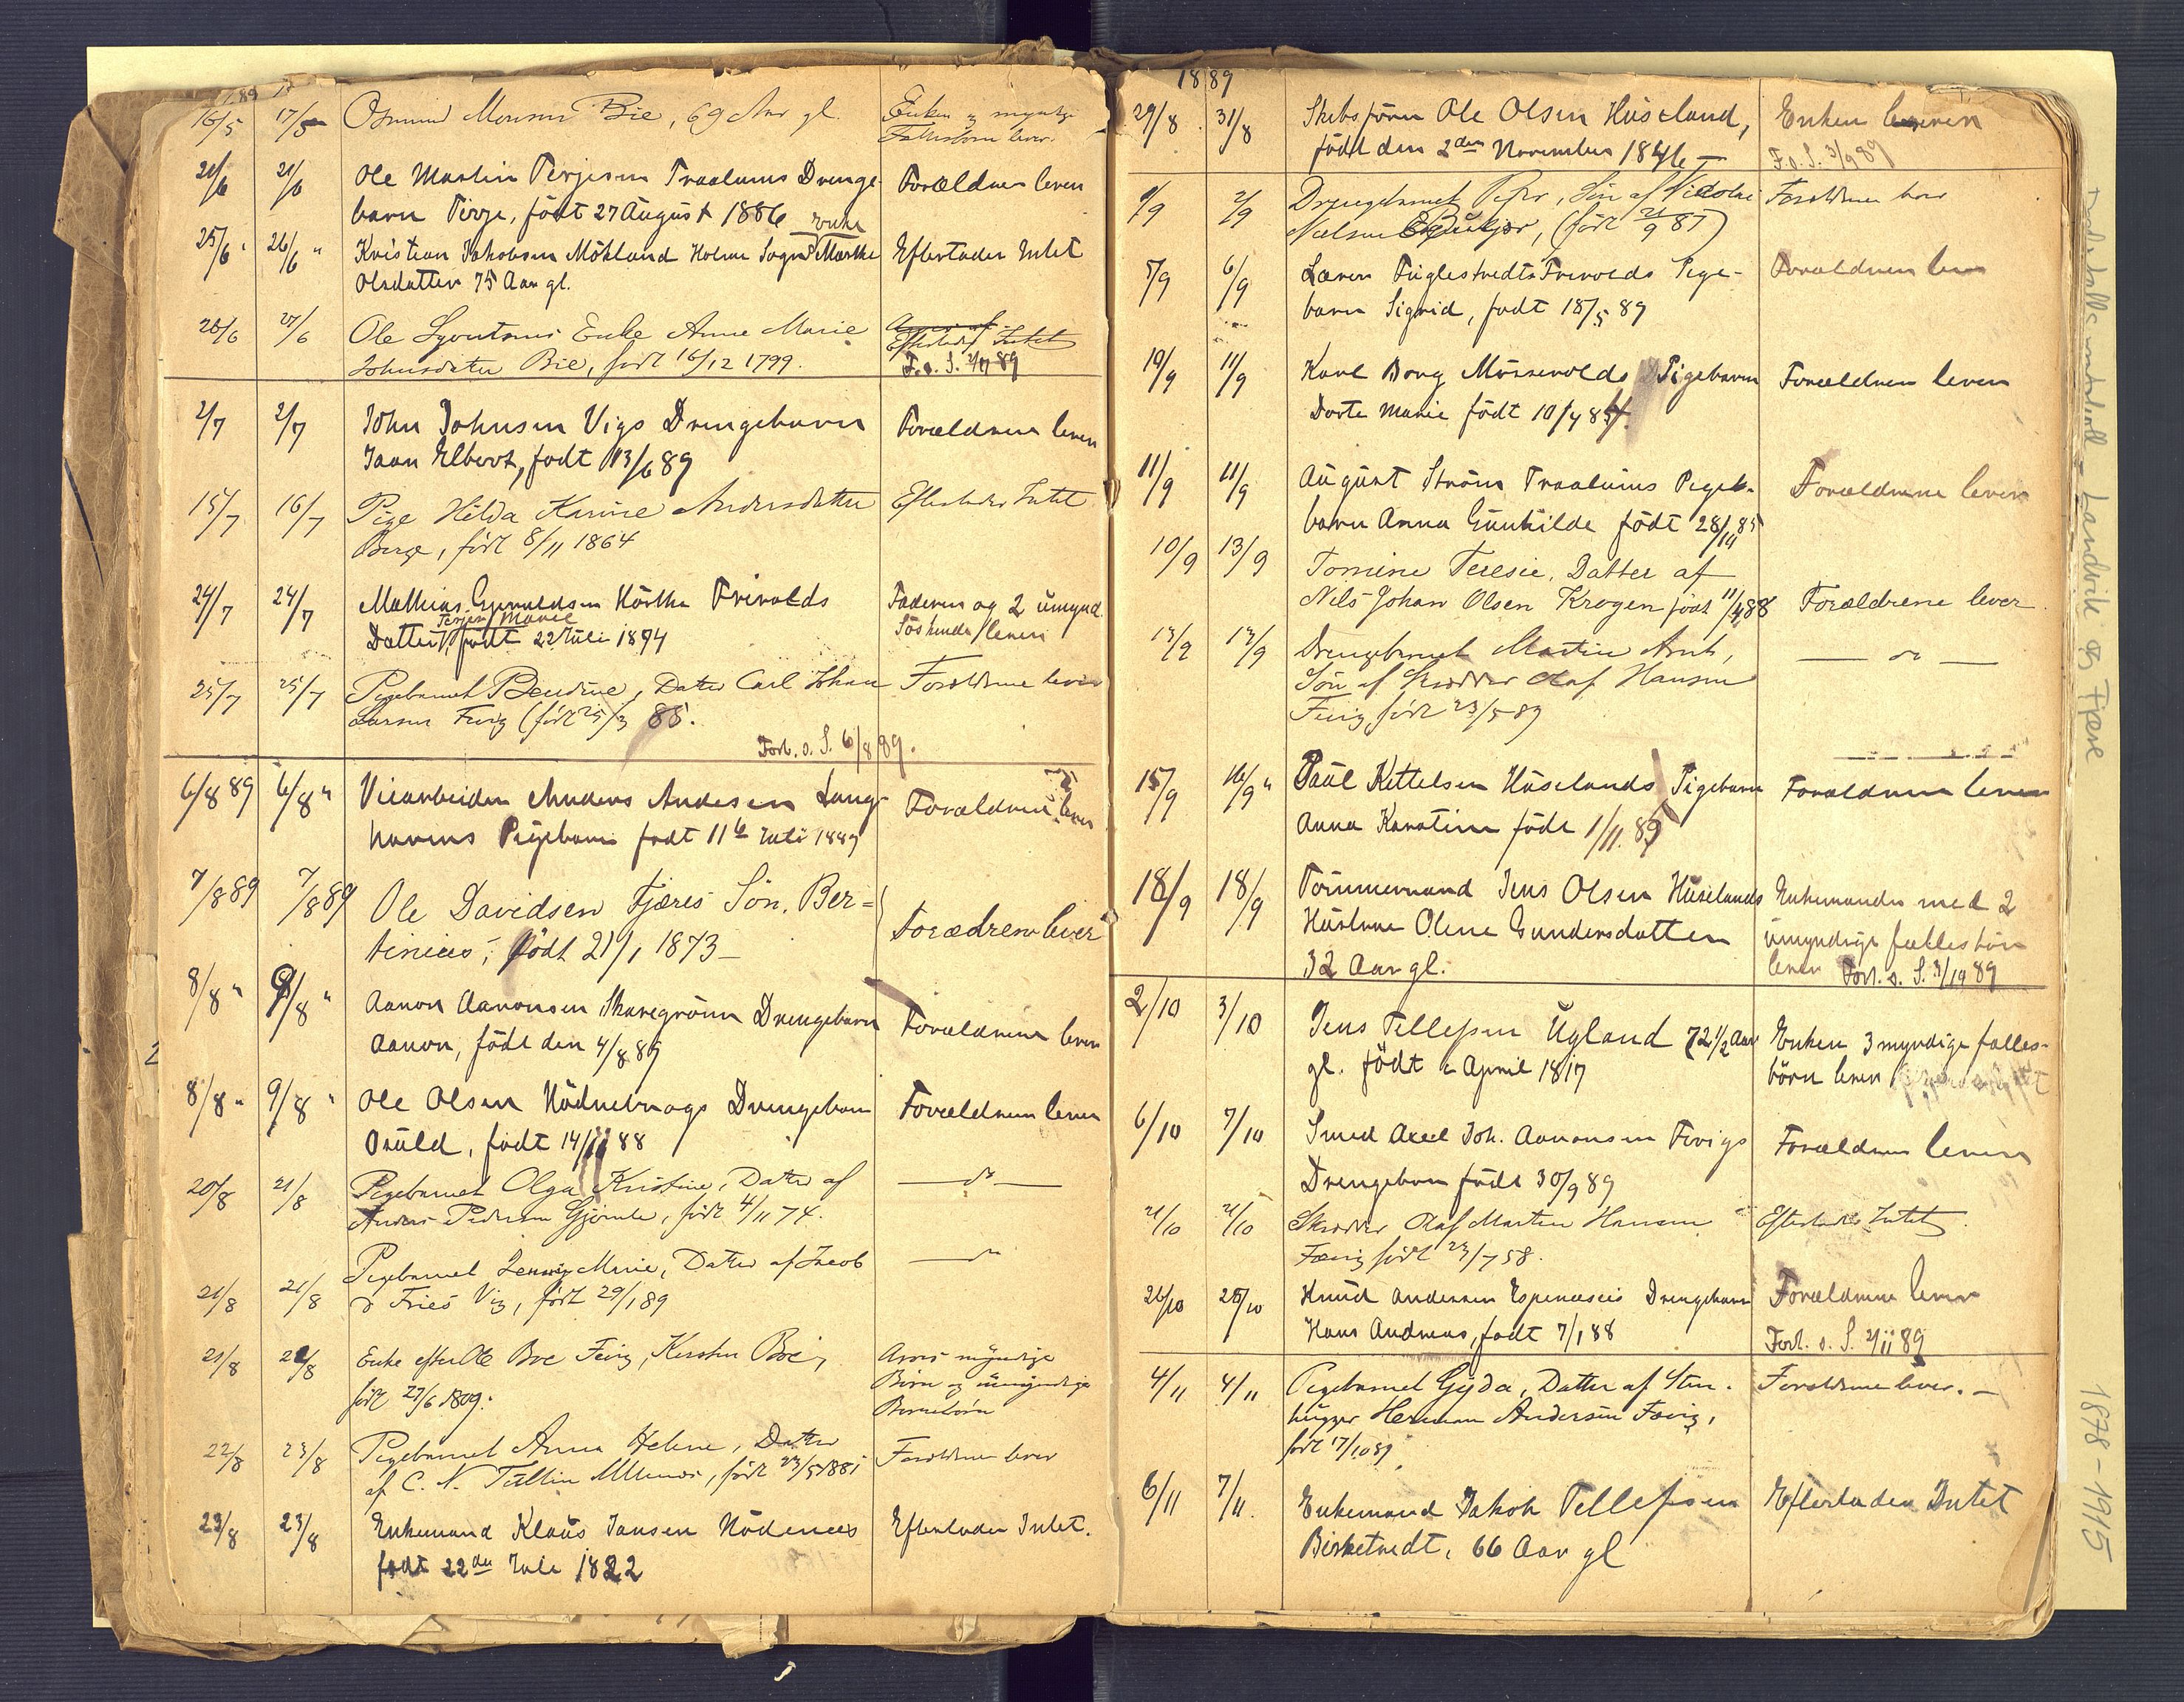 16/5 17/5 Osmund Monsen Bie, 69 Aar gl. Enken og myndige
Fællesbørn lever.
21/6 21/6 Ole Martin Terjesen Traalums Drenge- Forældrene lever
barn Terje, født 27 August 1886
Enke
25/6 26/6 " Kristian Jakobsen Mökland Holme Sogn Marthe Efterlader Intet
Olsdatter 75 Aar gl.
26/6 27/6 Ole Enke Anne Marie
Efterlader Intet
Johnsdatter Bie, født 16/12 1799. F. o. S. 89
2/7 2/7 John Johnsen Vigs Drengebarn Forældrene lever
Elbert, født 13/6 89
15/7 16/7 Pige Hilda Karine Andersdatter Efterlader Intet
Berge, født 8/11 1864
24/7 24/7 Mathias Frivolds Faderen og 2 umynd.
Marie
Datter, født 22 Juli 1874 Söskende lever
25/7 25/7 Pigebarnet Bendine, Datter Carl Johan Forældrene lever
Larsen Fevig (født 25/3 85.
Forb. o. S. 6/8 89.
6/8 89 6/8 " Veiarbeider Anders Andersen Lang- Forældrene lever
havens Pigebarn født 11te Juli 1889
7/8 89 7/8 89 Ole Davidsen Fjæres Sön, Ber= Forædrene lever
tinius, født 21/1 1873 —
8/8 " 9/8 " Aanon Aanonsen Skaregrönn Drengebarn Forældrene lever
Aanon, født den 4/8 89
8/8 " 9/8 " Ole Olsen Nödnebrags Drengebarn Forældrene lever
Osuld, født 14/11 88
20/8 21/8 Pigebarnet Olga Kristine, Datter af — do —
Anders Pedersen Gjömle, født 4/11 74.
Pigebarnet Jenny Marie, Datter af Jacob — do
21/8 21/8 D Fries Vig, født 29/1 89
21/8 22/8 Enke efter Ole Boe Fevig, Kirsten Boe, myndige
født 27/6 1809. Börn og umyndige
Børnebörn
22/8 23/8 Pigebarnet Anna Helene, Datter Forældrene lever
af C. N. Tallin født 23/5 1881
23/8 23/8 Enkemand Klaus Jansen Nödenes Efterlader Intet.
født 22de Juli 1822
1889
29/8 31/8 Skibsförer Ole Olsen Huseland, Enken lever
född den 2den November 1846 — F. o. S. 3/9 89
1/9 2/9 Drengebarnet Peder, Sön af Nicolai Forældrene lever
Nielsen (født 21/9 87)
5/9 6/9 Lærer Fuglestvedts Frivolds Pige- Forældrene lever
barn Sigrid, født 18/5 89
10/9 11/9 Karl Borg Mörevolds Pigebarn Forældrene lever
Dorte Marie født 10/4 84.
11/9 11/9 August Ström Traalums Pige- Forældrene lever
barn Anna Gunhilde født 28/11 85
10/9 13/9 Tomine Teresie, Datter af
Nils Johan Olsen Krogen født 11/4 88 Forældrene lever
13/9 13/9 Drengebarnet Martin Arnt, — do —
Sön af Skrædder Olaf Hansen
Fevig, født 23/5 89
15/9 16/9 " Paul Kittelsen Huselands Pigebarn Forældrene lever
Anna Karatine född 1/11. 89
18/9 18/9 Tömmermand Jens Olsen Huselands Enkemanden med 2
Hustrue Olene Gundersdatter umyndige fællesbörn
32 Aar gl. lever Fort. o. S. 3/10 89
2/10 3/10 Jens Tellefsen Ugland 72 1/2 Aar Enken 3 myndige fælles-
gl. født i April 1817 börn lever
6/10 7/10 Smed Axel Joh. Aanonsen Fevigs Forældrene lever
Drengebarn född 30/9 89
21/10 21/10 Skrædder Olaf Martin Hansen Efterlader Intet.
Fævig født 23/7 58.
26/10 28/10 Knud Andersen Espenæses Drengebarn Forældrene lever
Hans Andreas, født 7/1 88 Fort. o. S. 2/11 89
4/11 4/11 Pigebarnet Gyda, Datter af Sten- Forældrene lever. —
hugger Herman Andersen Fævig,
født 17/10 89.
6/11 7/11. Enkemand Jakob Tellefsen Efterlader Intet
Birketvedt, 66 Aar gl
Landvik og Fjære
1878-1915